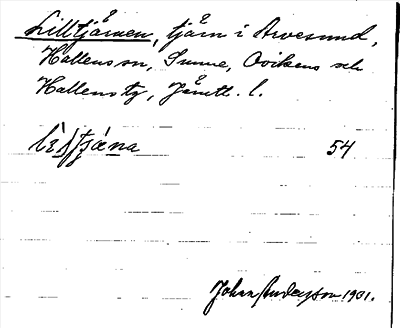 Lilltjärnen, tjärn i Arvesund,
Hallens sn, Sunne, Ovikens och
Hallens tg, Jämtl. l.
54
Johan Anderson 1901.